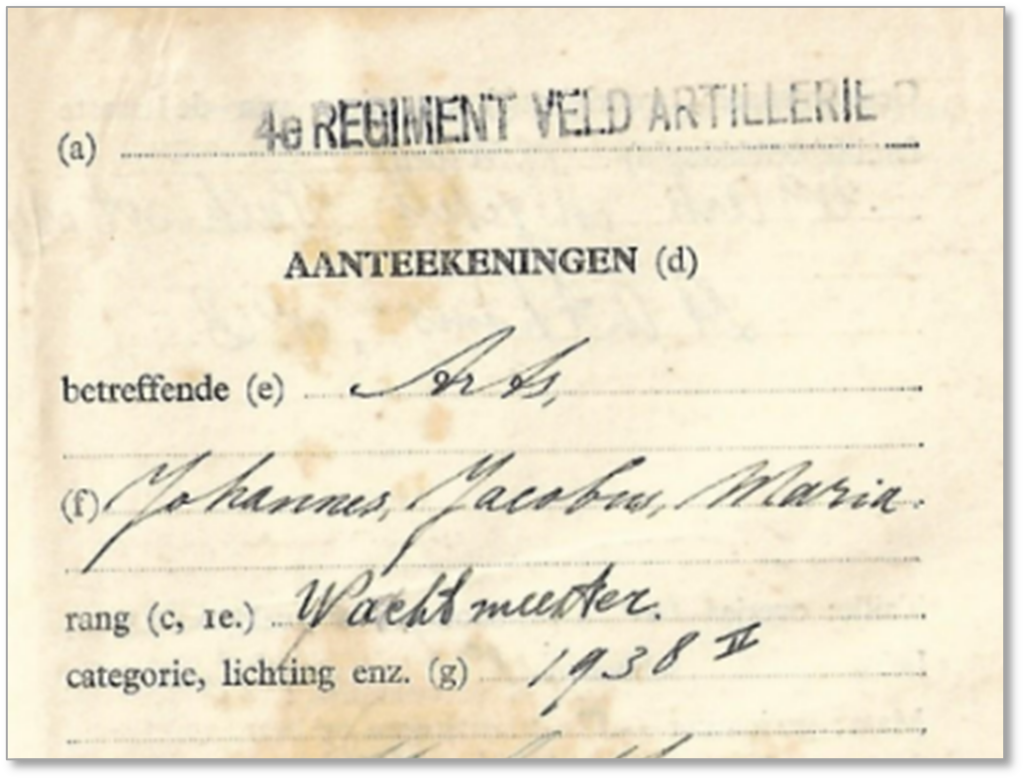 (a) 4e REGIMENT VELD ARTILLERIE
AANTEEKENINGEN (d)
betreffende (e) Arts,
(f) Johannes, Jacobus, Maria.
rang (c, 1e.) Wachtmeester.
categorie, lichting enz. (g) 1938 II